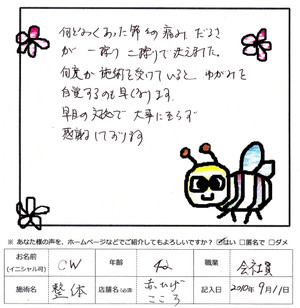 何となくあった節々の痛み、だるさ
が一擦り二擦りで決えました。
何度か施術を受けていると ゆがみを
自覚するのも早くなります。
早目の対処で大事に至らず
感謝しております
※ あなた様の声を、ホームページなどでご紹介してもよろしいですか? ☑はい □匿名で □ダメ
お名前 (イニシャル可) CW 年齢 42 職業 会社員
施術名 整体 店舗名(必須) 赤ひげこころ 記入日 2012年9月11日